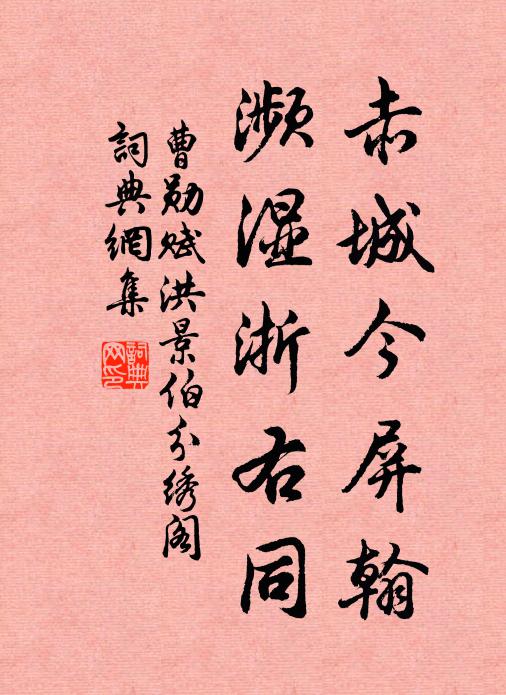 赤城今屏翰
濒湿浙右同
曹勋赋洪景伯分绣阁
詞典網集
詞典网印